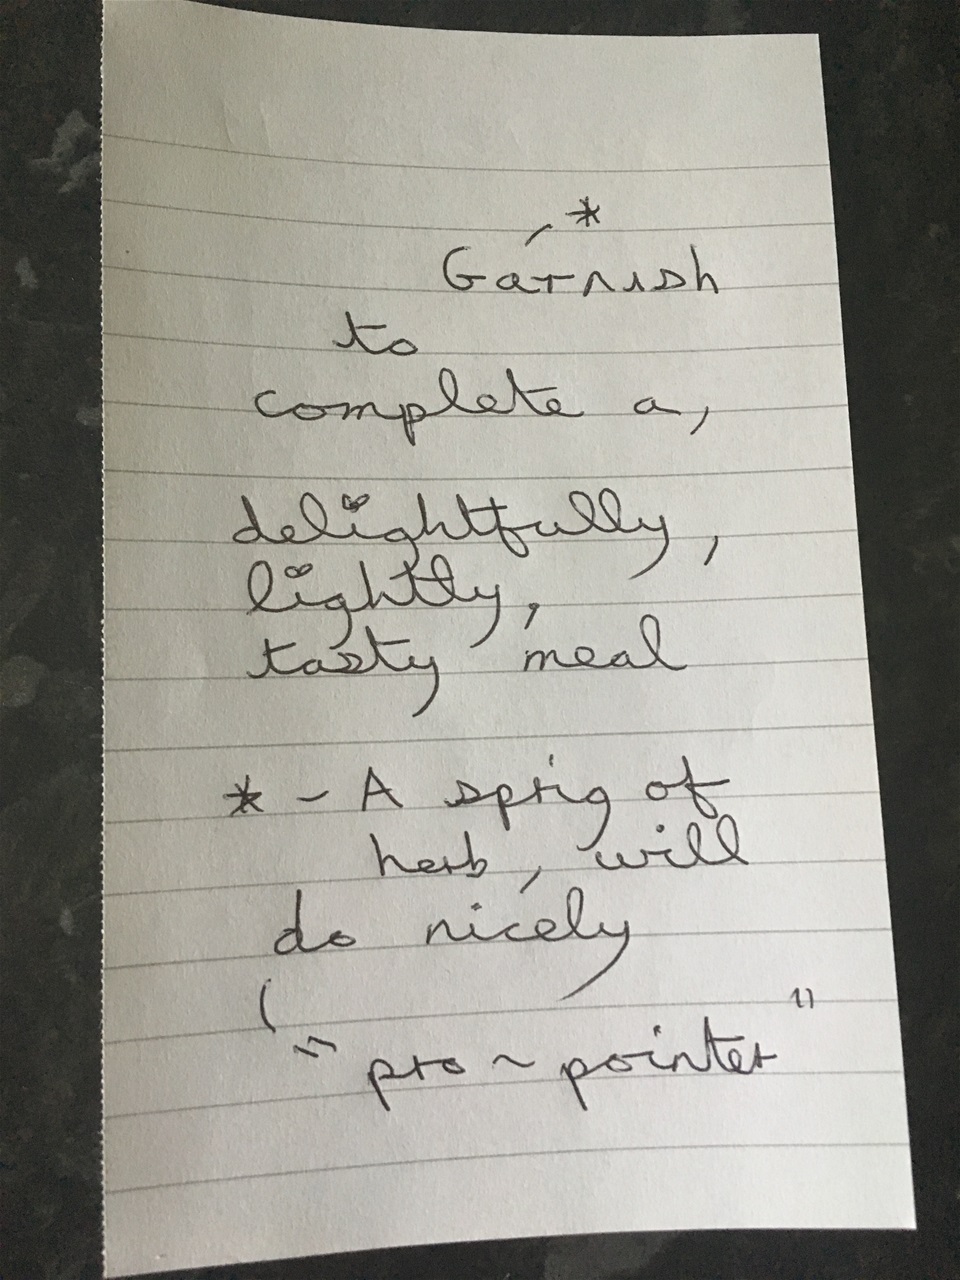 - *
Garnish
to
complete a,
delightfully,
lightly,
tasty meal
* - A sprig of
herb, will
do nicely
(
"pro ~ pointer"